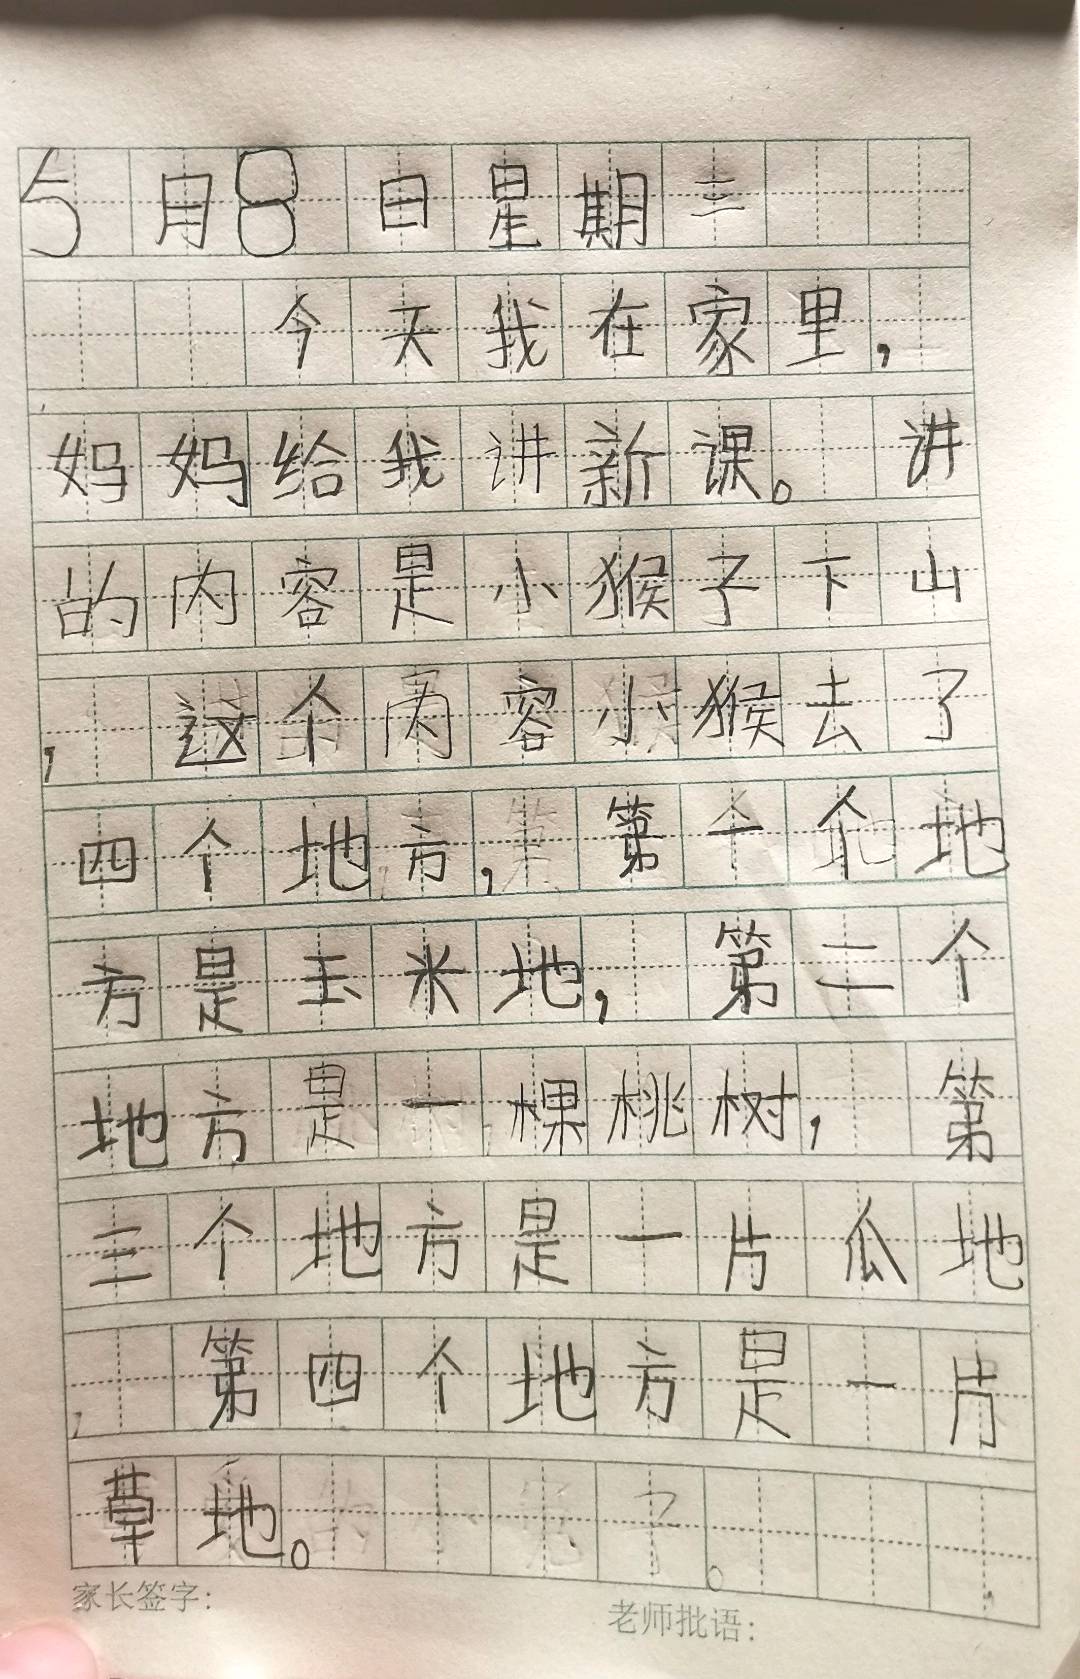 5月8日星期三
今天我在家里,
妈妈给我讲新课。讲
的内容是小猴子下山
,这个内容小猴去了
四个地方,第一个地
方是玉米地,第二个
地方是一棵桃树,第
三个地方是一片瓜地
,第四个地方是一片
草地。
家长签字:
老师批语: